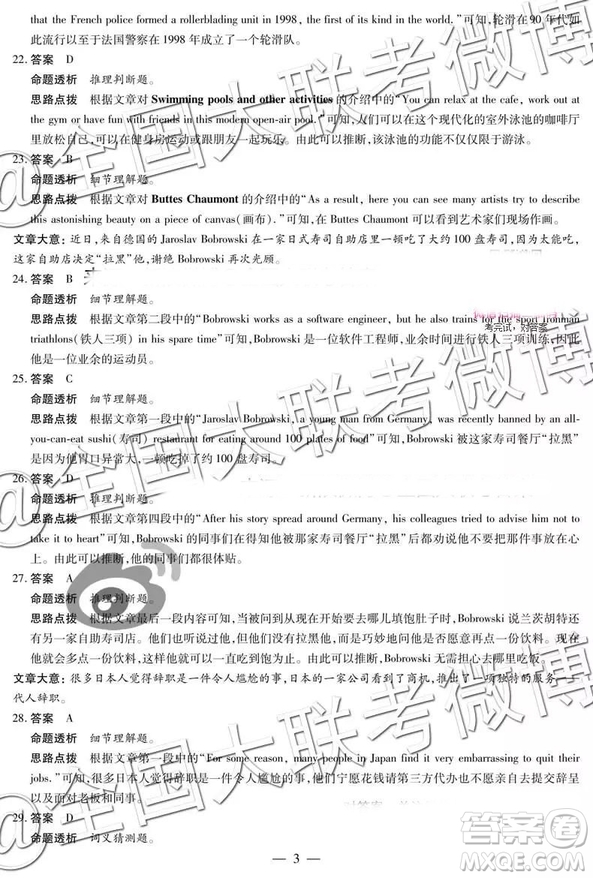 that the French police formed a rollerblading unit in 1998, the first of its kind in the world."可知，轮滑在90年代如
此流行以至于法国警察在1998年成立了一个轮滑队。
22. 答案 D
命题透析 推理判断题。
思路点拨 根据文章对Swimming pools and other activities的介绍中的"You can relax at the cafe, work out
at the gym or have fun with friends in this modern open-air pool."可知，人们可以在这个现代化的室外泳池的咖啡厅
里放松自己，可以在健身房运动或跟朋友一起玩乐。由此可以推断，该泳池的功能不仅仅限于游泳。
23. 答案 B
命题透析 细节理解题。
思路点拨 根据文章对Buttes Chaumont的介绍中的"As a result, here you can see many artists try to describe
this astonishing beauty on a piece of canvas(画布)."可知，在Buttes Chaumont可以看到艺术家们现场作画。
文章大意：近日，来自德国的Jaroslav Bobrowski在一家日式寿司自助店里一顿吃了大约100盘寿司。因为太能吃，
这家自助店决定"拉黑"他，谢绝Bobrowski再次光顾。
24. 答案 B
命题透析 细节理解题。
思路点拨 根据文章第二段中的"Bobrowski works as a software engineer, but he also trains for the sport Ironman
triathlons(铁人三项) in his spare time"可知，Bobrowski是一位软件工程师，业余时间进行铁人三项训练，因此
他是一位业余的运动员。
考完试，对答案
25. 答案 C
命题透析 细节理解题。
思路点拨 根据文章第一段中的"Jaroslav Bobrowski, a young man from Germany, was recently banned by an all-
you-can-eat sushi(寿司) restaurant for eating around 100 plates of food"可知，Bobrowski被这家寿司餐厅"拉黑"
是因为他胃口异常大，一顿吃掉了约100盘寿司。
26. 答案 D
命题透析 推理判断题。
思路点拨 根据文章第四段中的"After his story spread around Germany, his colleagues tried to advise him not to
take it to heart."可知，Bobrowski的同事们在得知他被那家寿司餐厅"拉黑"后，都尽力劝说他不要把这件事放在心
上。由此可以推断，他的同事们都很体贴。
27. 答案 A
命题透析 推理判断题。
思路点拨 根据文章最后一段内容可知，当被问到从现在开始要去哪儿填饱肚子时，Bobrowski说兰茨胡特还
有另一家自助寿司店。他说，他曾经去过那儿，但他们没有拉黑他，而是巧妙地问他是否愿意再点一份饮料。现在
他就会每次多点一份饮料，这样那家店就不会亏损太多。由此可以推断，Bobrowski无需担心去哪儿吃饭。
文章大意：很多日本人觉得辞职是一件令人尴尬的事，日本的一家公司看到了商机，推出了一项独特的服务——
代人辞职。
28. 答案 A
命题透析 细节理解题。
思路点拨 根据文章第一段中的"For some reason, many people in Japan find it very embarrassing to quit their
jobs."可知，很多日本人觉得辞职是一件令人尴尬的事，他们宁愿花钱请第三方代办也不愿亲自去提交辞呈
以及面对老板和同事。
29. 答案 D
命题透析 词义猜测题。
— 3 —
@全国大联考微博
@全国大联考微博
@全国大联考微博
答案圈
MXQE.COM